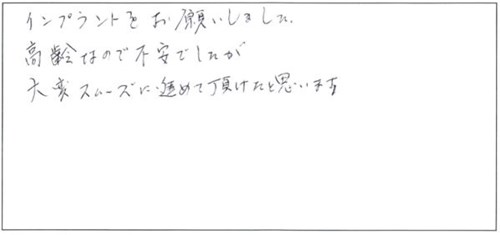 インプラントをお願いしました.
高齢なので不安でしたが
大変スムーズに進めて頂けたと思います